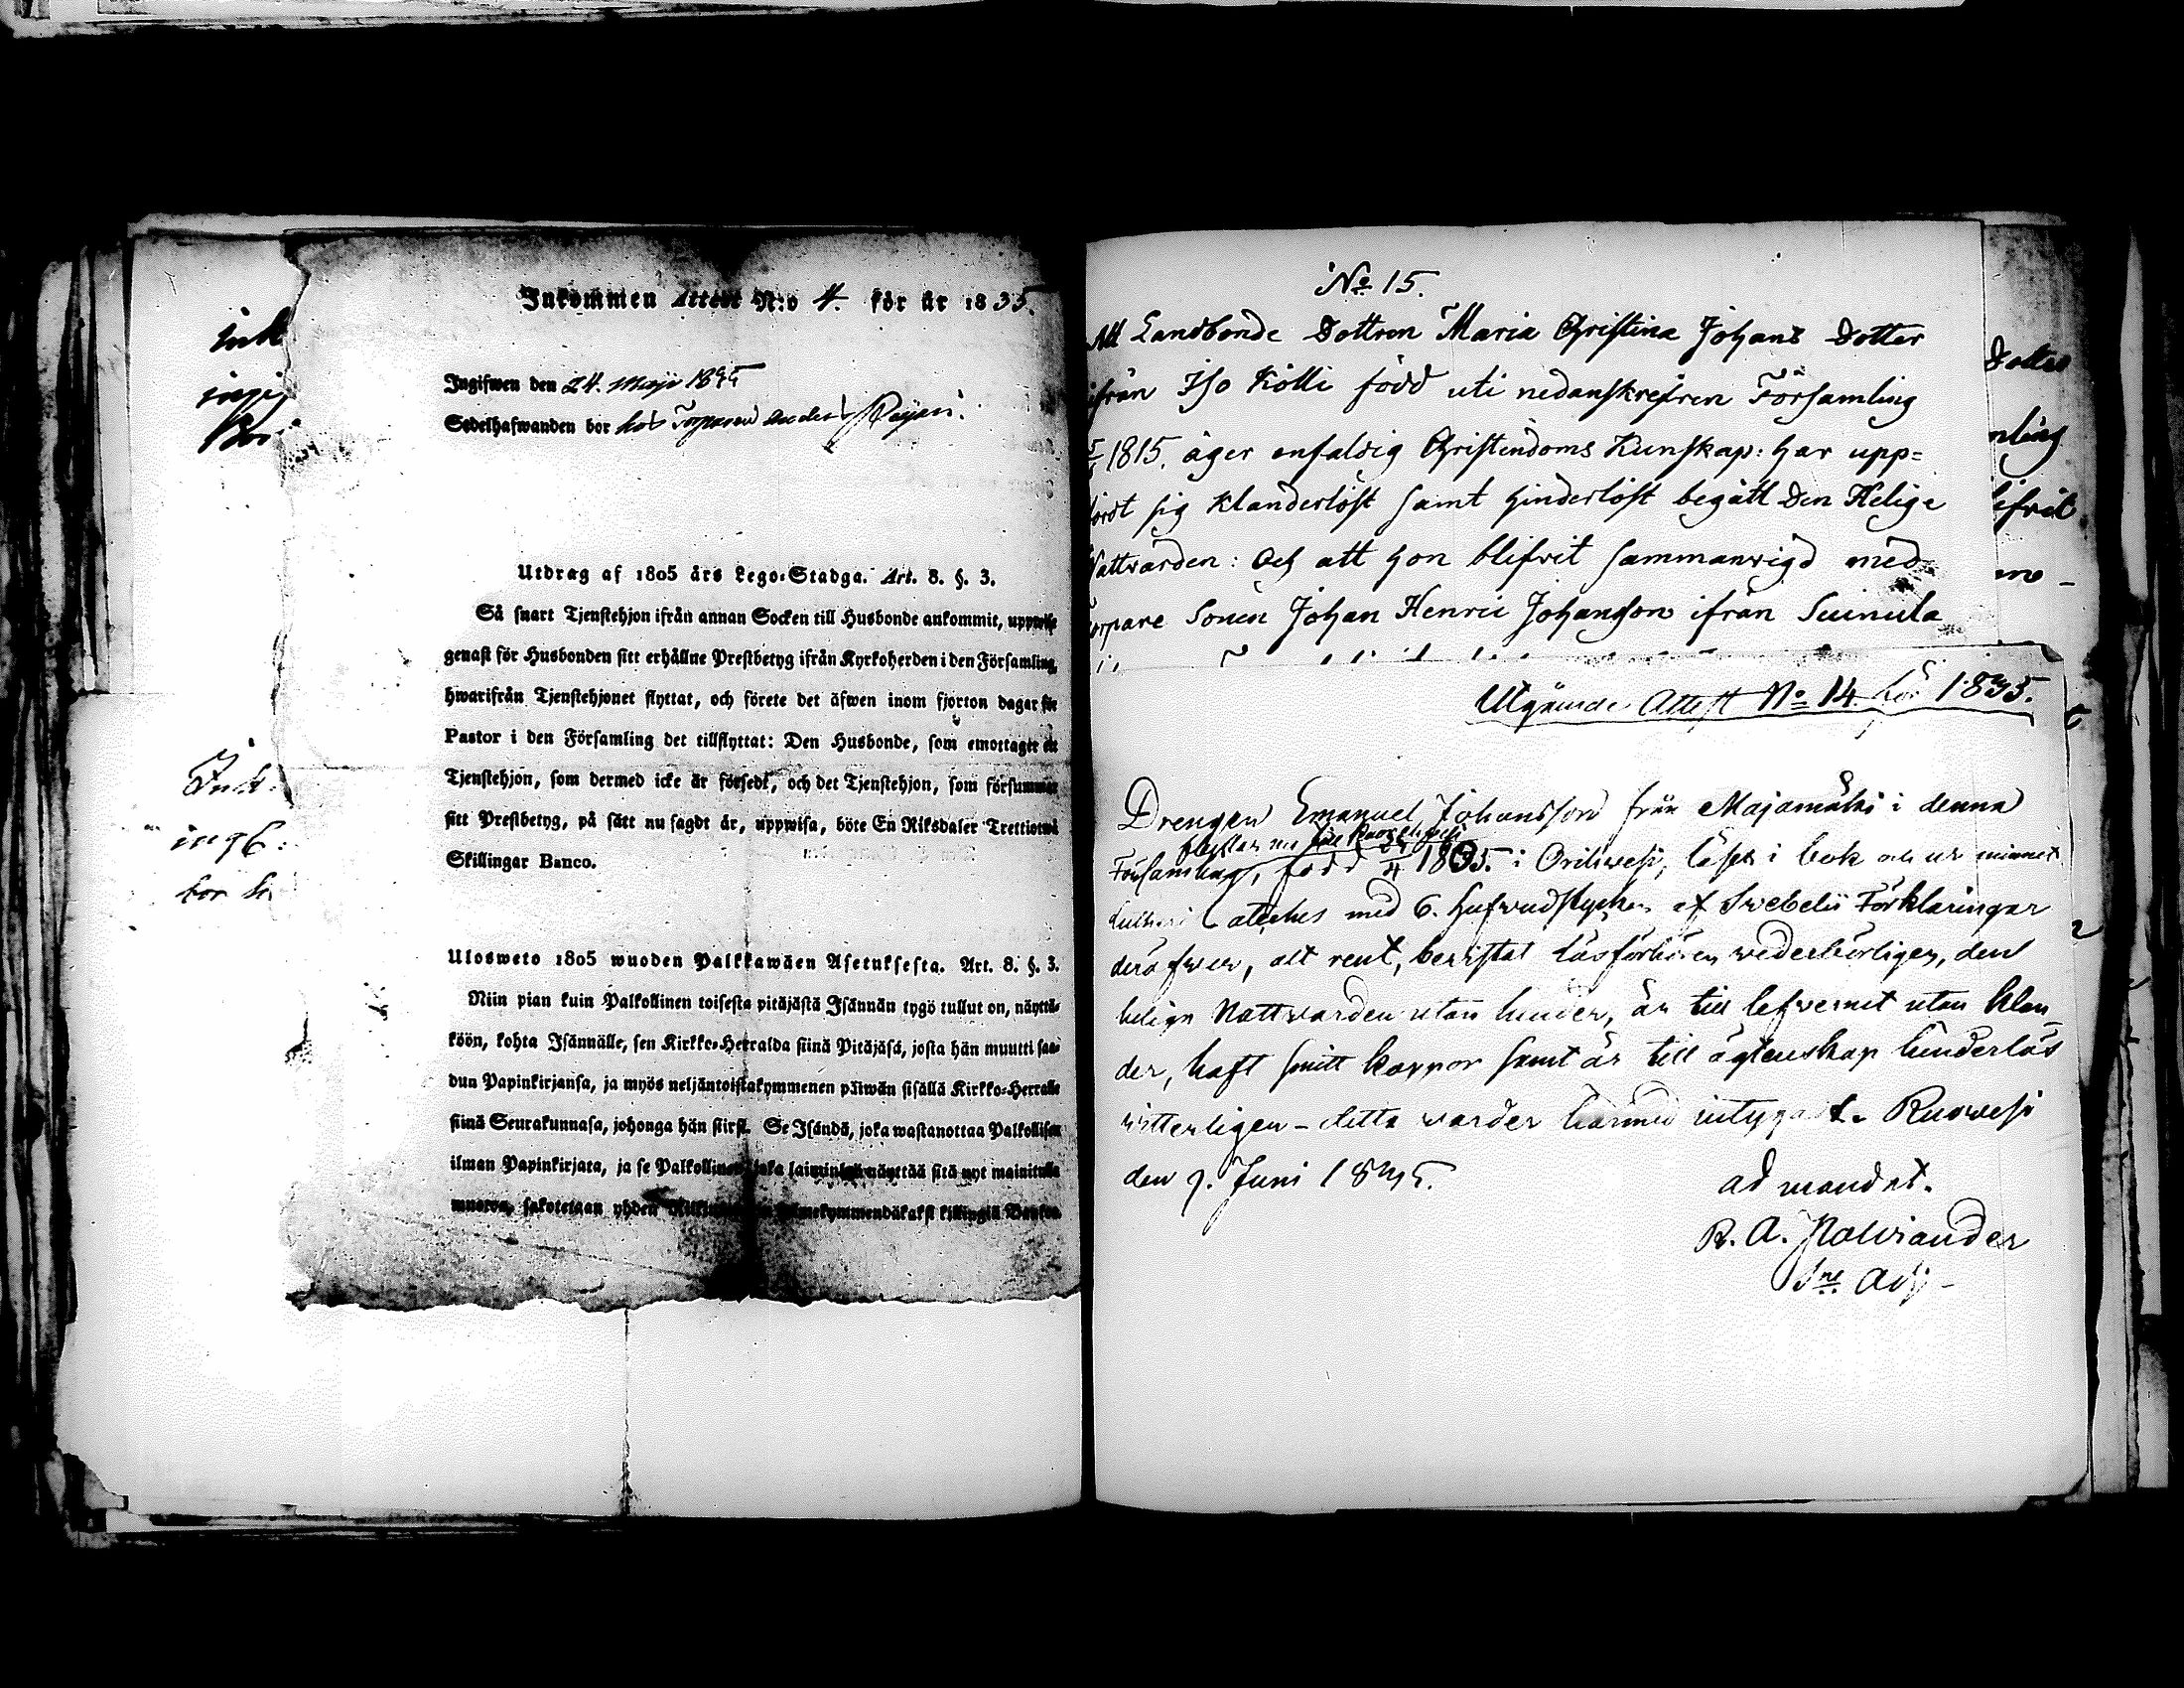 Inkommen Attest N:o 4. för år 1835.
Ingifwen den 24. Maji 1835
Sedelhafwanden bor hos Torparen Anders
Utdrag af 1805 års Lego-Stadga. Art. 8. §. 3.
Så snart Tjenstehjon ifrån annan Socken till Husbonde ankommit, uppwise
genast för Husbonden sitt erhållne Prestbetyg ifrån Kyrkoherden i den Församling,
hwarifrån Tjenstehjonet flyttat, och förete det äfwen inom fjorton dagar för
Pastor i den Församling det tillflyttat: Den Husbonde, som emottager ett
Tjenstehjon, som dermed icke är försedt, och det Tjenstehjon, som försummar
sitt Prestbetyg, på sätt nu sagdt är, uppwisa, böte En Riksdaler Trettiotwå
Skillingar Banco.
Ulosweto 1805 wuoden Palkkawäen Asetuksesta. Art. 8. §. 3.
Niin pian kuin Palkollinen toisesta pitäjästä Isännän tygö tullut on, näyttä-
köön, kohta Isännälle, sen Kirkko-Herralda siinä Pitäjäsä, josta hän muutti saa-
dun Papinkirjansa, ja myös neljäntoistakymmenen päiwän sisällä Kirkko-Herralle
siinä Seurakunnasa, johonga hän siirsi. Se Isändä, joka wastanottaa Palkollisen
ilman Papinkirjata, ja se Palkollinen joka laiminlyö näyttää sitä nyt mainitulla
muotoa, sakotetaan yhden
ink
ingi
Bor
Ink.
ingif.
bor h
No 15.
Att Landbonde Dottren Maria Christina Johans Dotter
ifrån Iso Kölli född uti nedanskrefven Församling
1815. äger enfaldig Christendoms Kunskap: har upp=
fördt sig klanderlöst samt hinderlöst begått Den Helige
Nattvarden: Och att hon blifvit sammanvigd med
Torpare Sonen Johan Henric Johansson ifrån Suinula
Dotter
mling
lifvit
me-
Utgående Attest No 14. för 1835.
Drengen Emanuel Johansson från Majamäki i denna
flyttar nu
Församling, född 1835. i Orihwesi, läser i bok och ur minnet
Lutheri Cateches med 6. hufvudstycken af Swebelii Förklaringar
deröfwer, alt rent, bevistat läsförhören wederbörligen, den
helige Nattvarden utan hinder, är till lefvernet utan klan-
der, haft smitt koppor samt är till ägtenskap hinderlös
witterligen - detta warder härmed intygadt. Ruowesi
den 9. Juni 1835.
ad mandat.